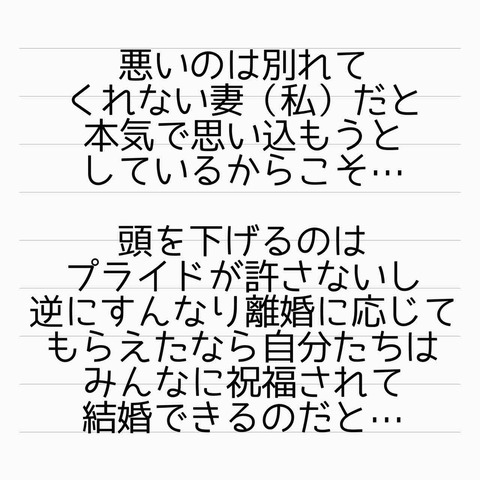 悪いのは別れて
くれない妻（私）だと
本気で思い込もうと
しているからこそ…
頭を下げるのは
プライドが許さないし
逆にすんなり離婚に応じて
もらえたなら自分たちは
みんなに祝福されて
結婚できるのだと…